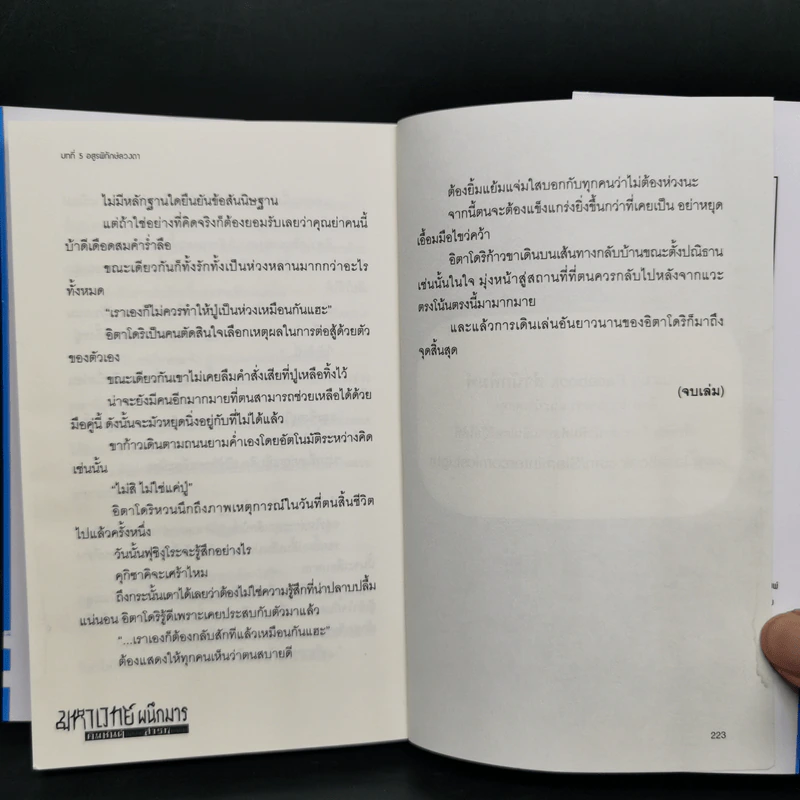 บทที่ 5 อสูรพิทักษ์ลวงตา
ไม่มีหลักฐานใดยืนยันข้อสันนิษฐาน
แต่ถ้าใช่อย่างที่คิดจริงก็ต้องยอมรับเลยว่าคุณย่าคนนี้
บ้าดีเดือดสมคำร่ำลือ
ขณะเดียวกันก็ทั้งรักทั้งเป็นห่วงหลานมากกว่าอะไร
ทั้งหมด
“เราเองก็ไม่ควรทำให้ปู่เป็นห่วงเหมือนกันแฮะ”
อิตาโดริเป็นคนตัดสินใจเลือกเหตุผลในการต่อสู้ด้วยตัว
ของตัวเอง
ขณะเดียวกันเขาไม่เคยลืมคำสั่งเสียที่ปู่เหลือทิ้งไว้
น่าจะยังมีคนอีกมากมายที่ตนสามารถช่วยเหลือได้ด้วย
มือคู่นี้ ดังนั้นจะมัวหยุดนิ่งอยู่กับที่ไม่ได้แล้ว
ขาก้าวเดินตามถนนยามค่ำเองโดยอัตโนมัติระหว่างคิด
เช่นนั้น
“ไม่สิ ไม่ใช่แค่ปู่”
อิตาโดริหวนนึกถึงภาพเหตุการณ์ในวันที่ตนสิ้นชีวิต
ไปแล้วครั้งหนึ่ง
วันนั้นฟุชิงุโระจะรู้สึกอย่างไร
คุกิซาคิจะเศร้าไหม
ถึงกระนั้นเดาได้เลยว่าต้องไม่ใช่ความรู้สึกที่น่าปลาบปลื้ม
แน่นอน อิตาโดริรู้ดีเพราะเคยประสบกับตัวมาแล้ว
“...เราเองก็ต้องกลับสักทีแล้วเหมือนกันแฮะ”
ต้องแสดงให้ทุกคนเห็นว่าตนสบายดี
มหาเวทย์ ผนึกมาร
ต้องยิ้มแย้มแจ่มใสบอกกับทุกคนว่าไม่ต้องห่วงนะ
จากนี้ตนจะต้องแข็งแกร่งยิ่งขึ้นกว่าที่เคยเป็น อย่าหยุด
เอื้อมมือไขว่คว้า
อิตาโดริก้าวขาเดินบนเส้นทางกลับบ้านขณะตั้งปณิธาน
เช่นนั้นในใจ มุ่งหน้าสู่สถานที่ที่ตนควรกลับไปหลังจากแวะ
ตรงโน้นตรงนี้มามากมาย
และแล้วการเดินเล่นอันยาวนานของอิตาโดริก็มาถึง
จุดสิ้นสุด
(จบเล่ม)
223